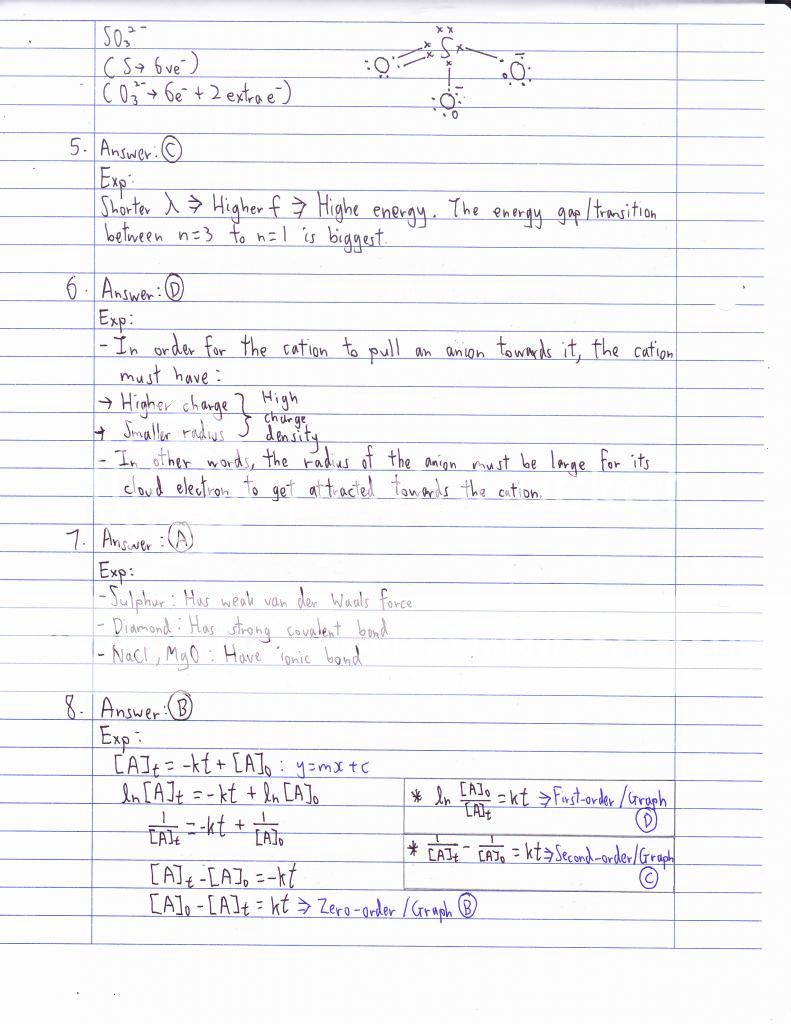 SO₃²⁻
(S → 6ve⁻)
(O₃²⁻ → 6e⁻ + 2 extra e⁻)
S
O
O
O
5. Answer: Ⓒ
Exp:
Shorter λ ⇒ Higher f ⇒ Highe energy. The energy gap/transition
between n=3 to n=1 is biggest.
6. Answer: Ⓓ
Exp:
- In order for the cation to pull an anion towards it, the cation
must have:
→ Higher charge } High
→ Smaller radius } charge density
- In other words, the radius of the anion must be large for its
cloud electron to get attracted towards the cation.
7. Answer: Ⓐ
Exp:
- Sulphur: Has weak van der Waals force
- Diamond: Has strong covalent bond
- NaCl, MgO: Have ionic bond
8. Answer: Ⓑ
Exp:
[A]t = -kt + [A]₀ : y=mx+c
ln[A]t = -kt + ln[A]₀
1/[A]t = -kt + 1/[A]₀
[A]t - [A]₀ = -kt
[A]₀ - [A]t = kt ⇒ Zero-order/Graph Ⓑ
* ln [A]₀/[A]t = kt ⇒ First-order/Graph Ⓓ
* 1/[A]t - 1/[A]₀ = kt ⇒ Second-order/Graph Ⓒ